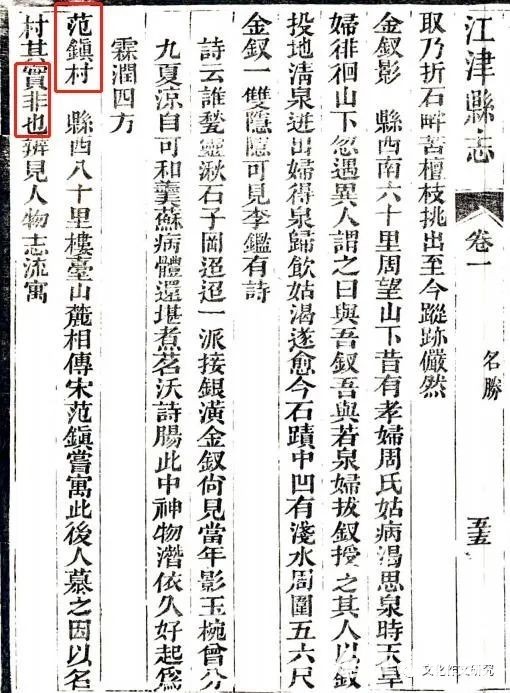 江津縣志
卷一
名勝
五五
取乃折石畔苦檀枝挑出至今蹤跡儼然
金釵影　縣西南六十里周望山下昔有孝婦周氏姑病渴思泉時天旱
婦徘徊山下忽遇異人謂之曰與吾釵吾與若泉婦拔釵授之其人以釵
投地淸泉迸出婦得泉歸飮姑渴遂愈今石蹟中凹有淺水周圍五六尺
金釵一雙隱隱可見李鑑有詩
詩云誰甃靈湫石子岡迢迢一派接銀潢金釵尙見當年影玉椀曾分
九夏涼自可和羹蘇病體還堪煮茗沃詩腸此中神物潛依久好起爲
霖潤四方
范鎭村　縣西八十里樓臺山麓相傳宋范鎭嘗寓此後人慕之因以名
村其實非也辨見人物志流寓
文化館文研究